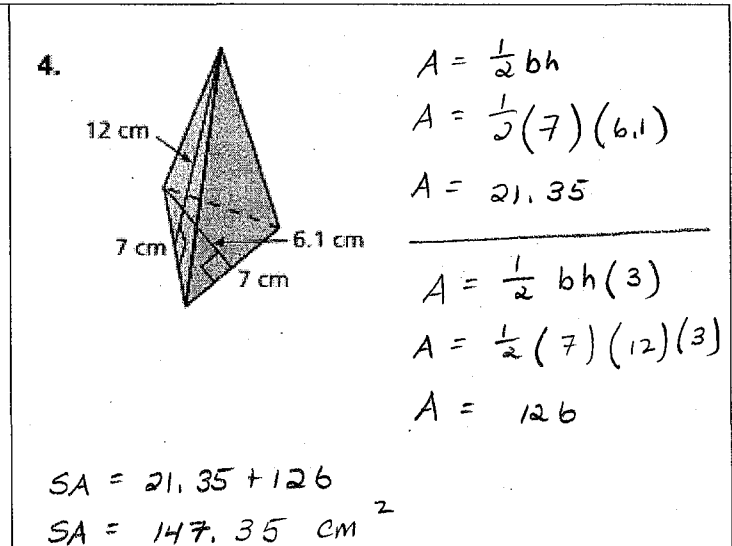 4.
12 cm
7 cm
6.1 cm
7 cm
A = 1/2 bh
A = 1/2 (7)(6.1)
A = 21.35
A = 1/2 bh(3)
A = 1/2 (7)(12)(3)
A = 126
SA = 21.35 + 126
SA = 147.35 cm²